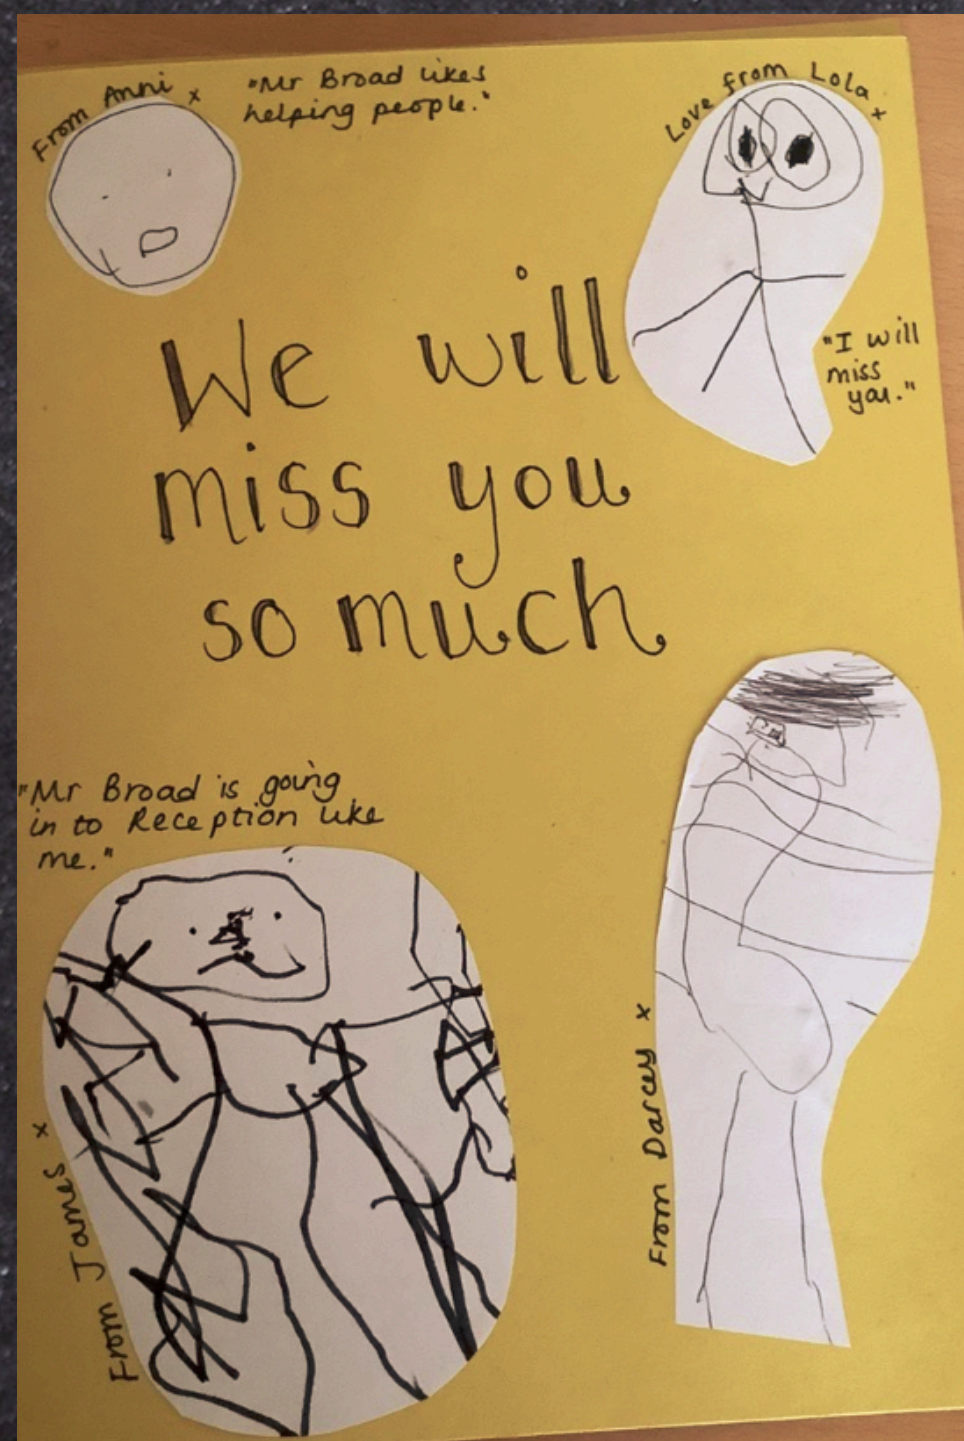 From Anni x
"Mr Broad likes
helping people."
Love from Lola x
We will
miss you
so much
"I will
miss
you."
"Mr Broad is going
in to Reception like
me."
From James x
From Darcey x